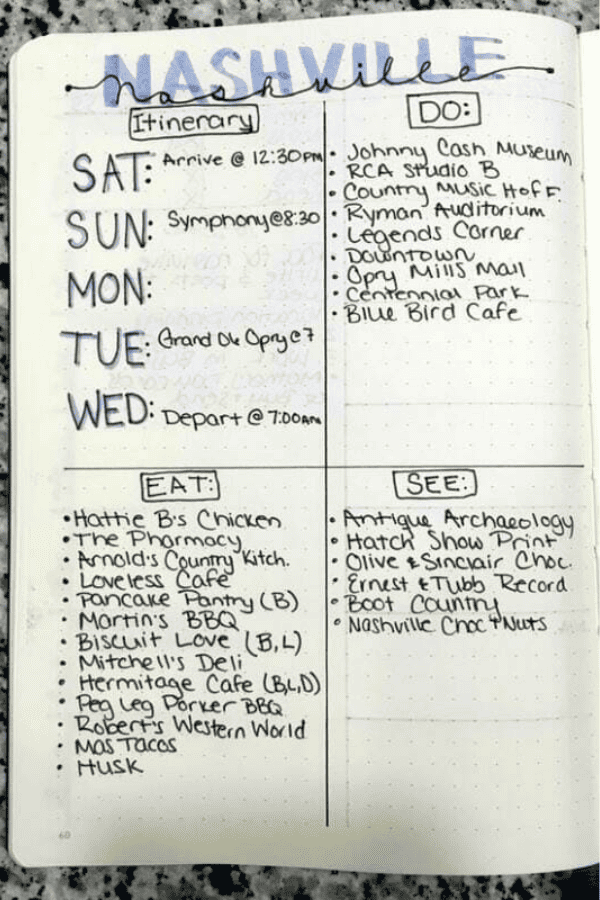 NASHVILLE
nashville
Itinerary
SAT: Arrive @ 12:30PM
SUN: Symphony@8:30
MON:
TUE: Grand Ole Opry@7
WED: Depart @ 7:00AM
DO:
• Johnny Cash Museum
• RCA Studio B
• Country Music HofF.
• Ryman Auditorium
• Legends Corner
• Downtown
• Opry Mills Mall
• Centennial Park
• Blue Bird Cafe
EAT:
• Hattie B's Chicken
• The Pharmacy
• Arnold's Country Kitch.
• Loveless Cafe
• Pancake Pantry (B)
• Martin's BBQ
• Biscuit Love (B,L)
• Mitchell's Deli
• Hermitage Cafe (B,L,D)
• Peg Leg Porker BBQ
• Robert's Western World
• Mas Tacos
• Husk
SEE:
• Antique Archaeology
• Hatch Show Print
• Olive & Sinclair Choc.
• Ernest & Tubb Record
• Boot Country
• Nashville Choc + Nuts
60